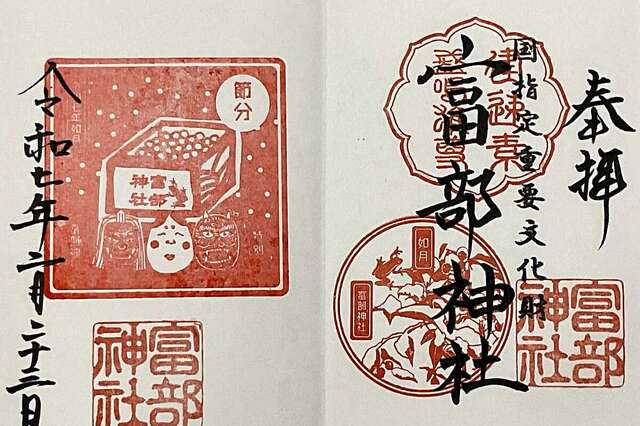 奉拝
国指定重要文化財
富部神社
建速素
盞嗚尊
如月
富部神社
富部
神社
令和七年二月二十三日
節分
年如月
富部
神社
特別
富部
神社